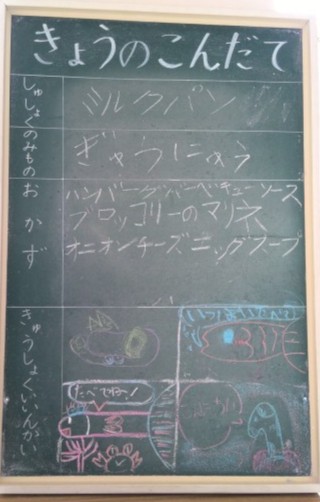 きょうのこんだて
しゅしょく
ミルクパン
のみもの
ぎゅうにゅう
おかず
ハンバーグバーベキューソース
ブロッコリーのマリネ
オニオンチーズエッグスープ
きゅうしょくいいんかい
いっぱいたべて
たべてね〜!